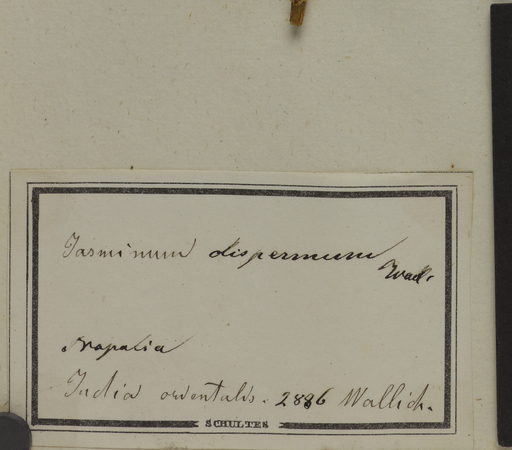 Jasminum dispermum Wall.
Napalia
India orientalis. 2886 Wallich.
SCHULTES